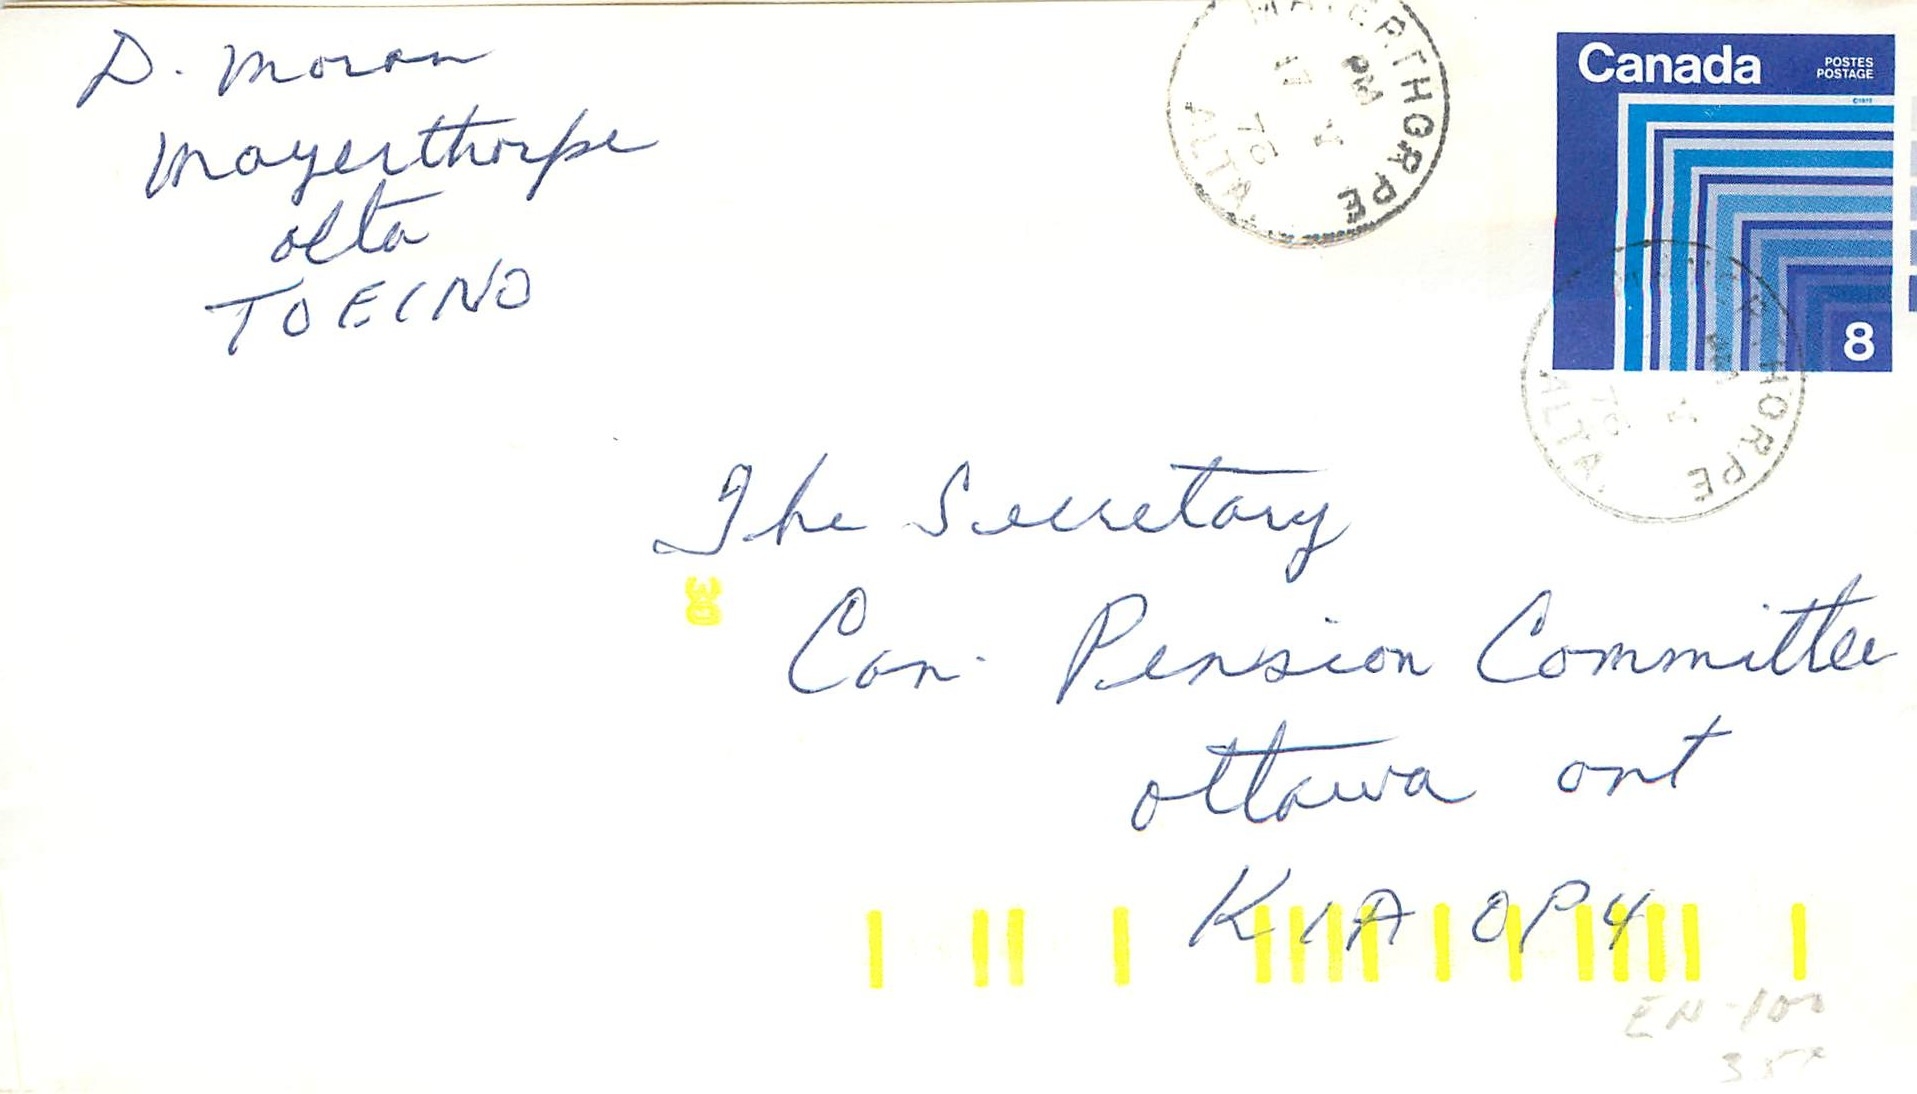 D. Moran
Mayerthorpe
alta
TOE INO
MAYERTHORPE
PM
17
76
ALTA.
Canada
POSTES
POSTAGE
8
MAYERTHORPE
PM
76
ALTA.
The Secretary
Can. Pension Committee
ottawa ont
K1A 0P4
EN-100